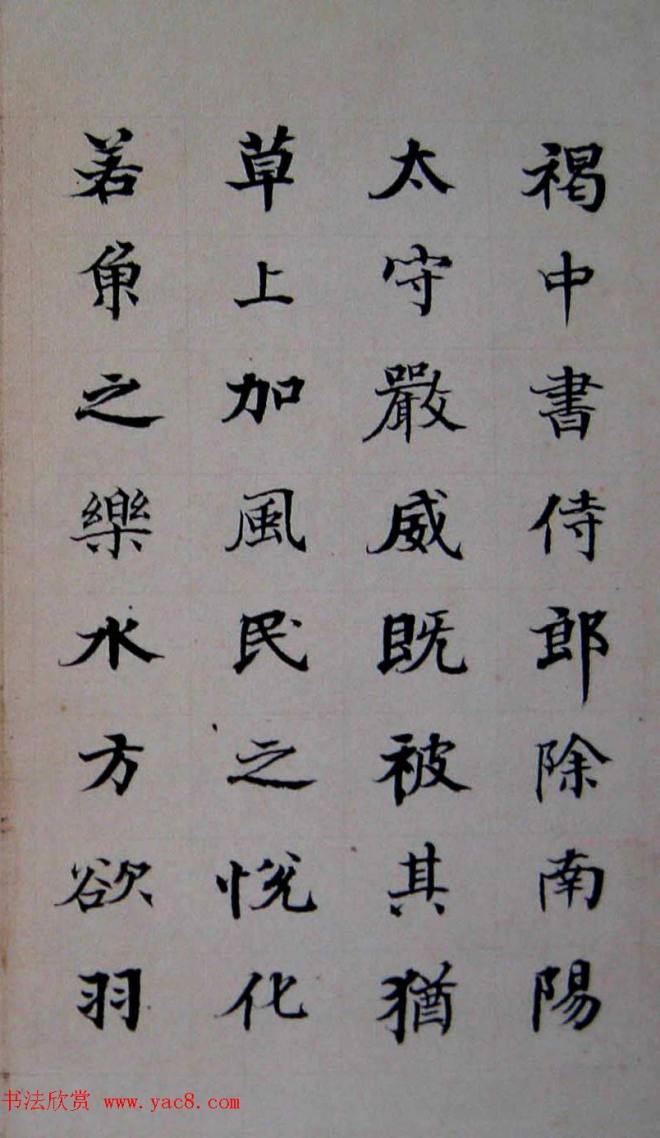 褐中書侍郎除南陽
太守嚴威既被其猶
草上加風民之悅化
若魚之樂水方欲羽
书法欣赏 www.yac8.com